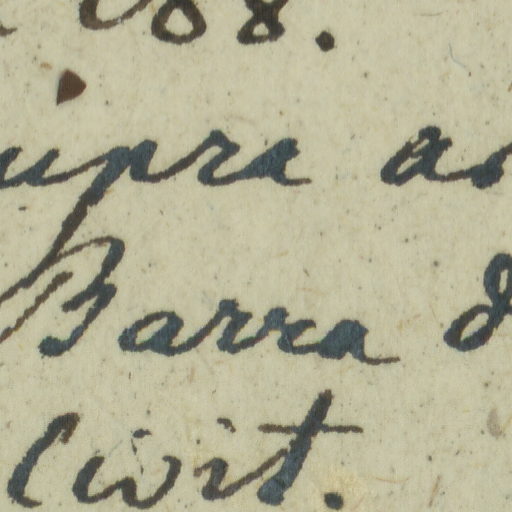 88.
supra as
Barra d
Civit.